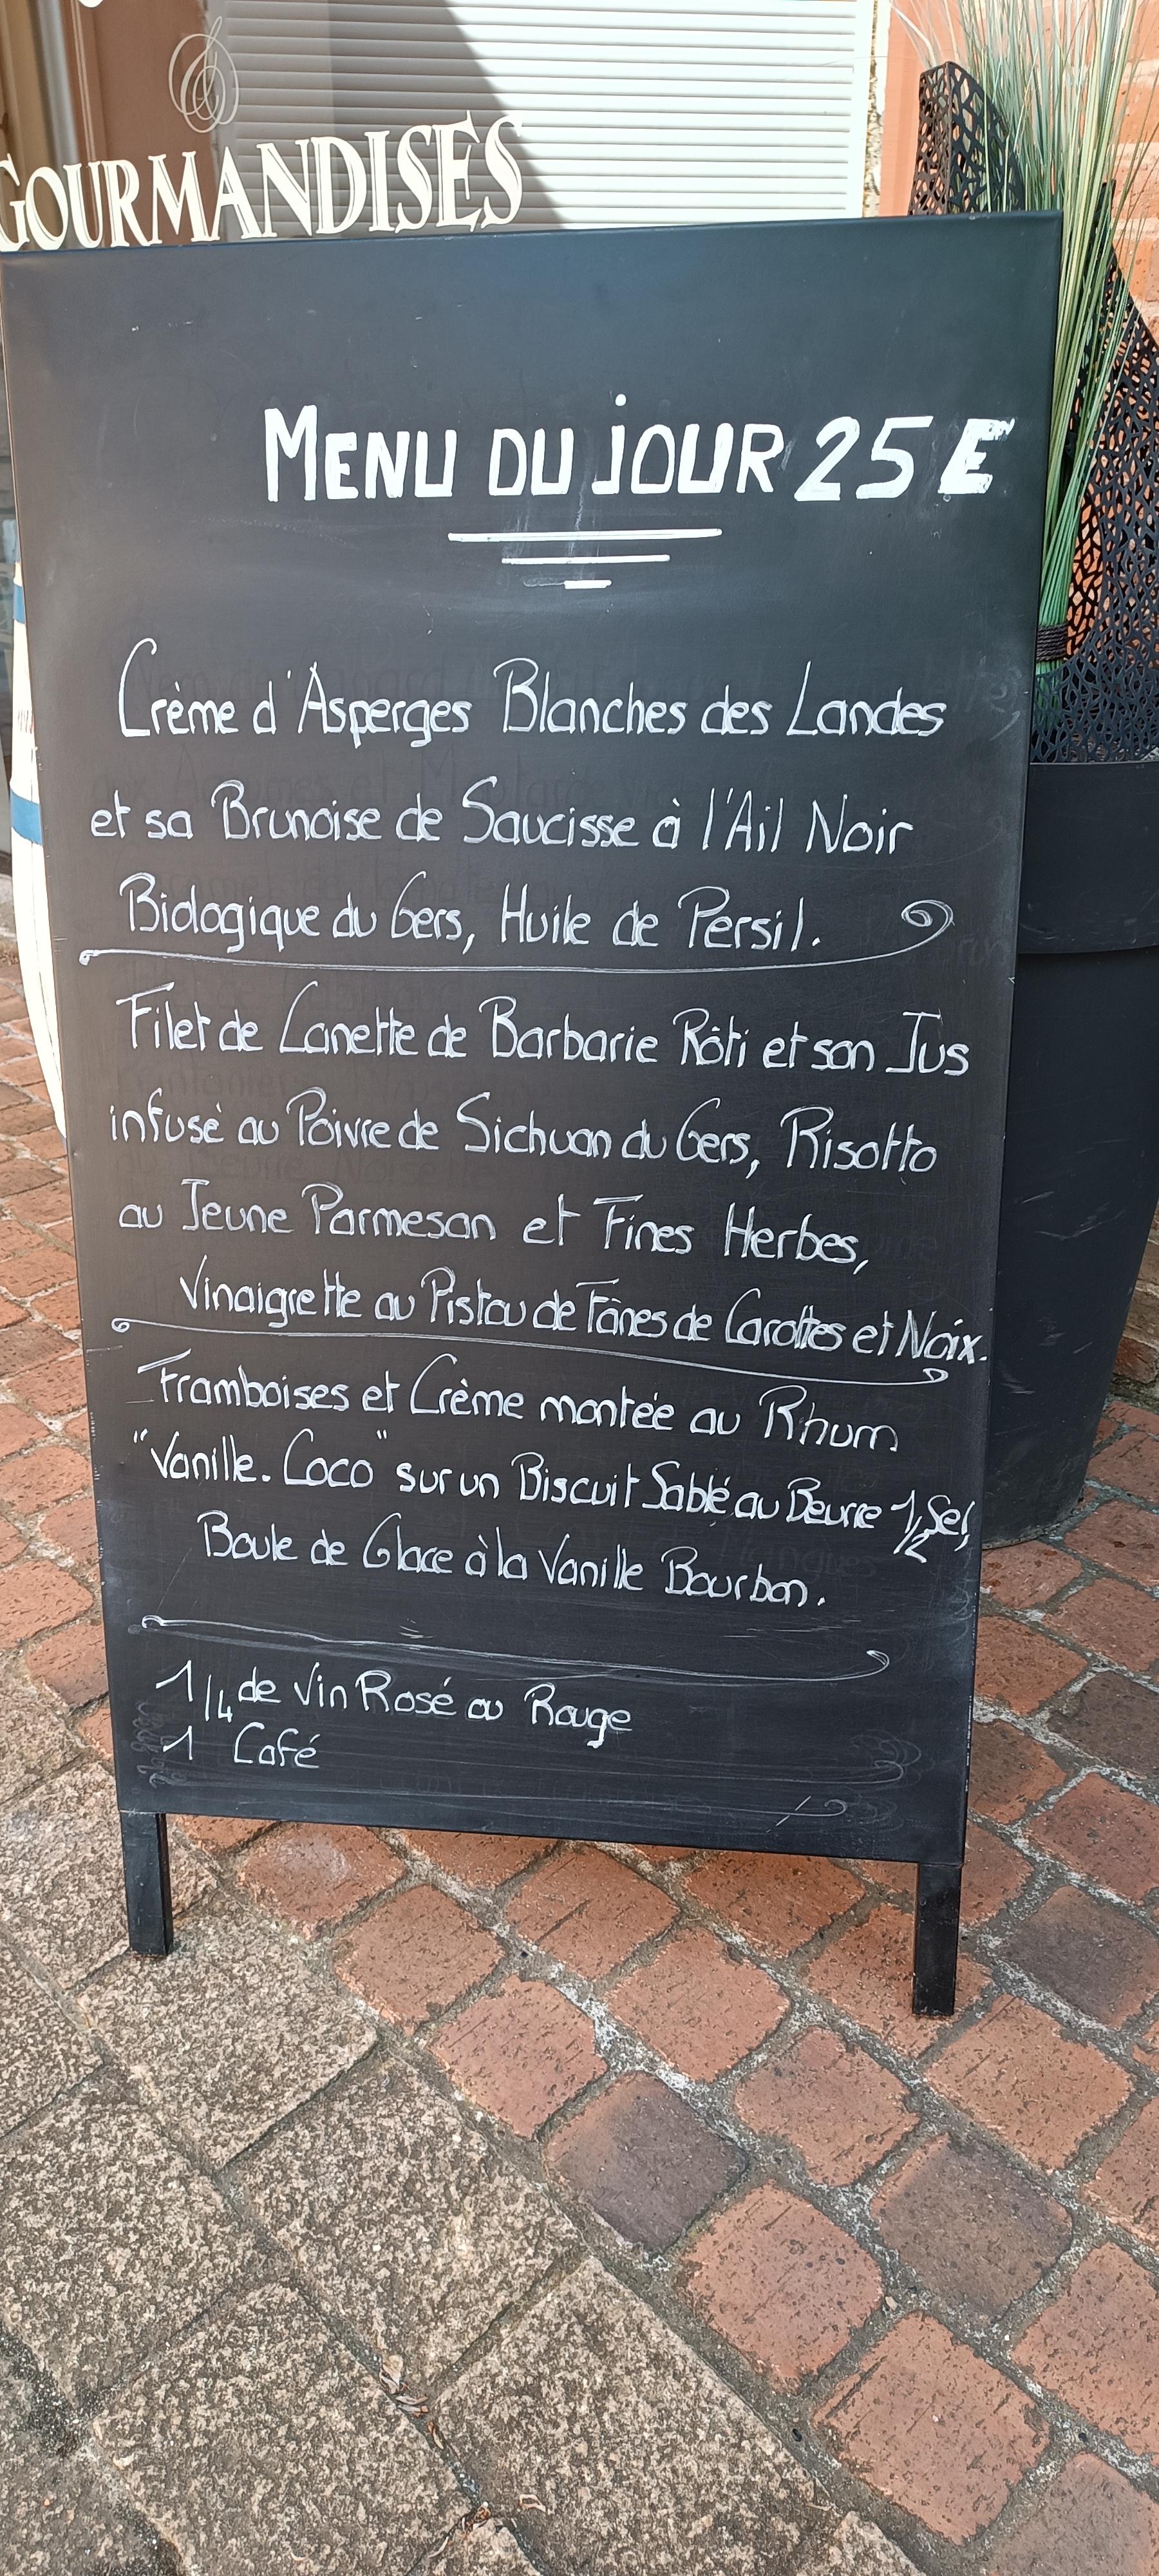 GOURMANDISES
MENU DU JOUR 25 E
Crème d'Asperges Blanches des Landes
et sa Brunoise de Saucisse à l'Ail Noir
Biologique du Gers, Huile de Persil.
Filet de Canette de Barbarie Rôti et son Jus
infusé au Poivre de Sichuan du Gers, Risotto
au Jeune Parmesan et Fines Herbes,
Vinaigrette au Pistou de Fânes de Carottes et Noix.
Framboises et Crème montée au Rhum
"Vanille. Coco" sur un Biscuit Sablé au Beurre 1/2 Sel,
Boule de Glace à la Vanille Bourbon.
1/4 de Vin Rosé ou Rouge
1 Café